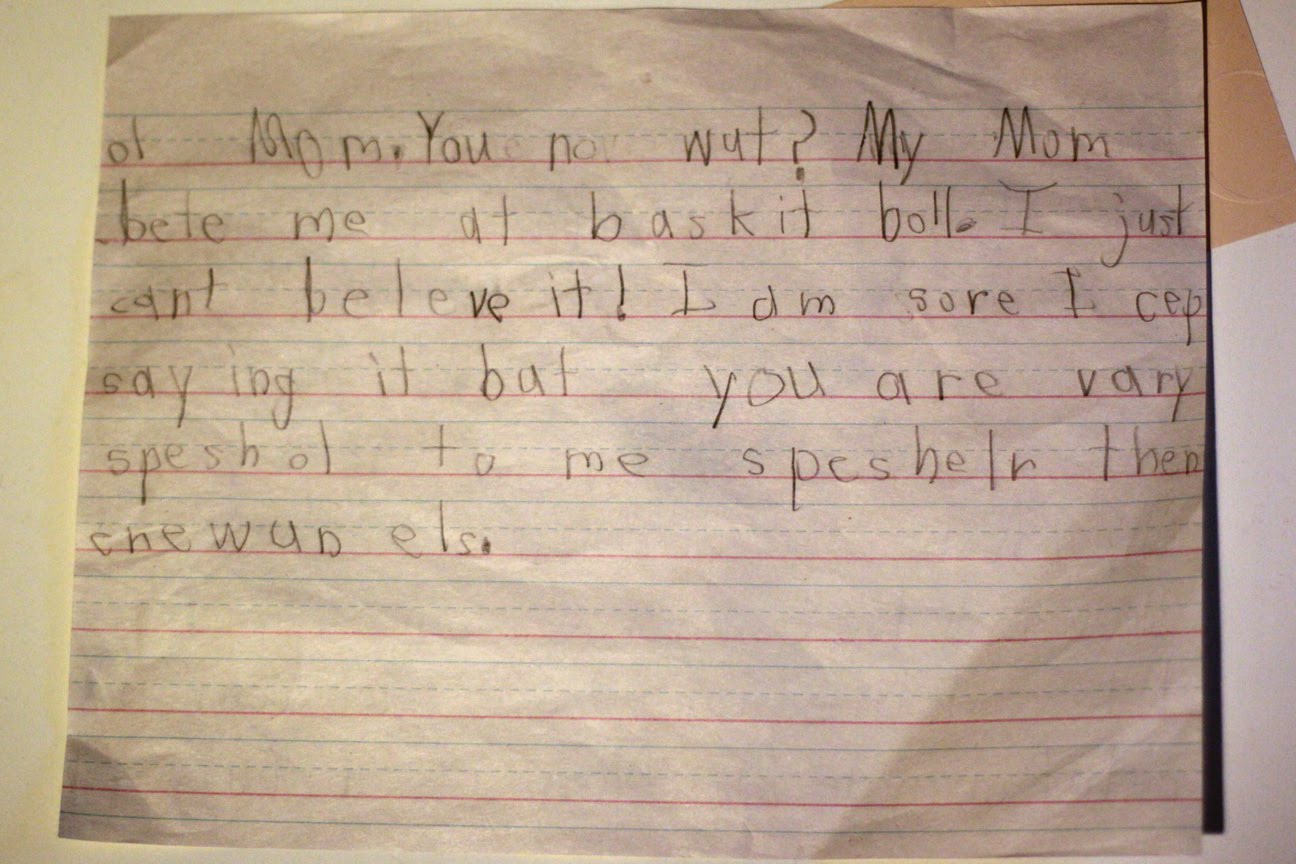 of Mom. You no wut? My Mom
bete me at baskit boll. I just
cant beleve it! I am sore I cep
saying it but you are vary
speshol to me speshelr then
enewun els.